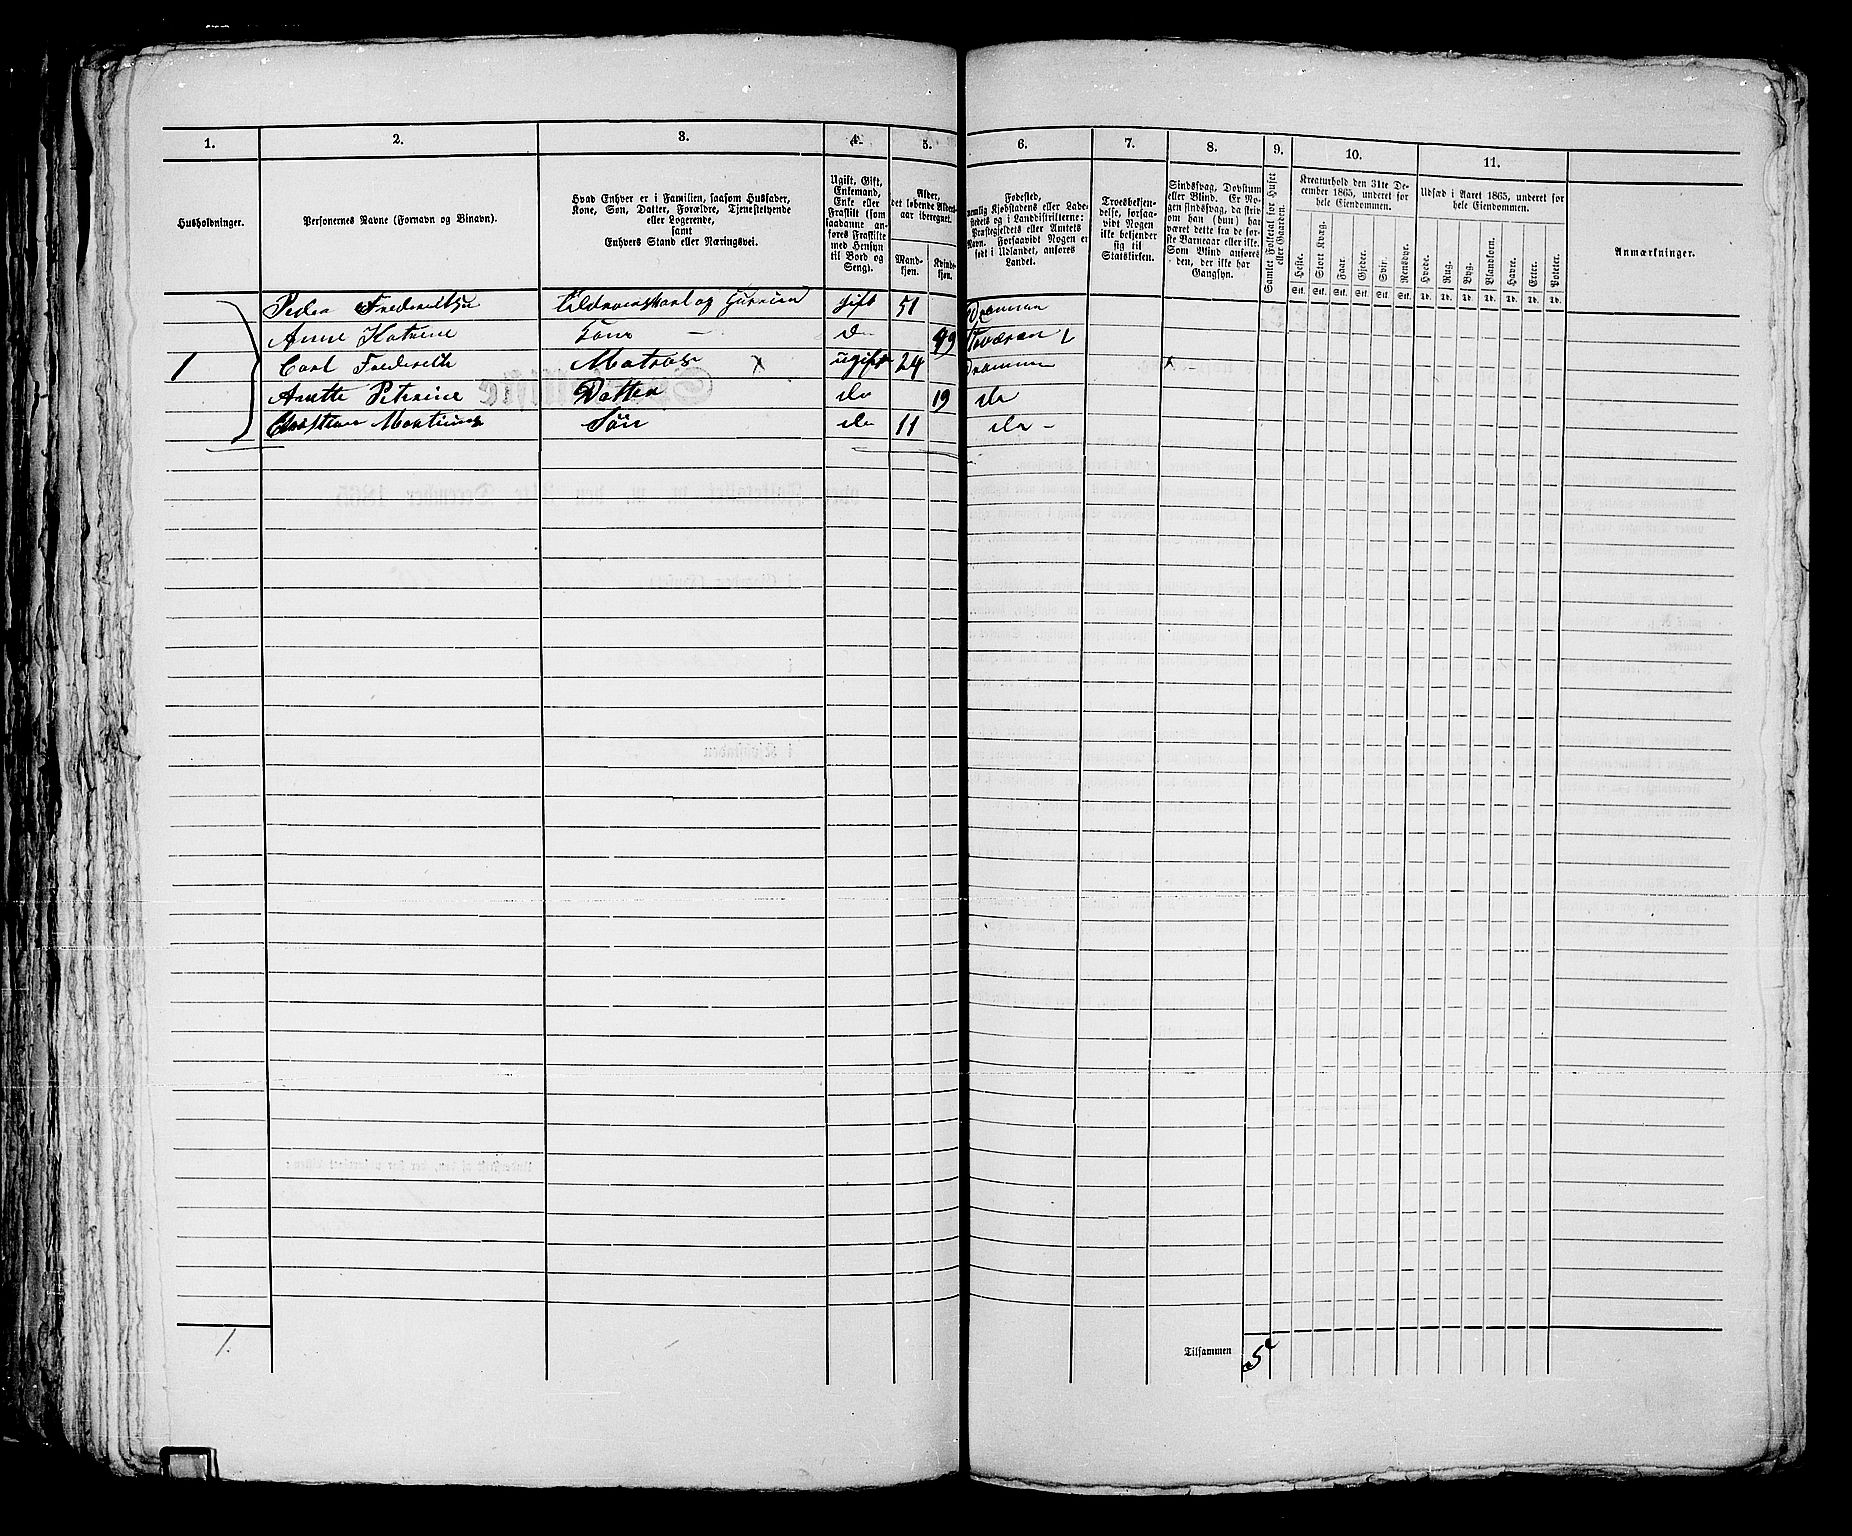 1. 2. 3. 4. 5. 6. 7. 8. 9. 10. 11.
Husholdninger.
Personernes Navne (Fornavn og Binavn).
Hvad Enhver er i Familien, saasom Husfader,
Kone, Søn, Datter, Forældre, Tjenestetyende
eller Logerende,
samt
Enhvers Stand eller Næringsvei.
Ugift, Gift,
Enkemand,
Enke eller
Fraskilt (som
saadanne an-
føres Fraskilte
med Hensyn
til Bord og
Seng).
Alder,
det løbende Alders-
aar iberegnet.
Mand-
kjøn.
Kvinde-
kjøn.
Fødested,
nemlig Kjøbstadens eller Lade-
stedets og i Landdistrikterne:
Præstegjeldets eller Amtets
Navn. Forsaavidt Nogen er
født i Udlandet, anføres
Landet.
Troesbekjen-
delse, forsaa-
vidt Nogen
ikke bekjender
sig til
Statskirken.
Sindssvag, Døvstum
eller Blind. Er No-
gen sindssvag, da skrives
om han (hun) har
været dette fra de før-
ste Barneaar eller ikke.
Som Blind anføres
den, der ikke har
Gangsyn.
Samlet Folketal for Huset
eller Gaarden.
Kreaturhold den 31te De-
cember 1865, underet for
hele Eiendommen.
Heste. Stort Kvæg. Faar. Gjeder. Svin. Rensdyr.
Stk. Stk. Stk. Stk. Stk. Stk.
Udsæd i Aaret 1865, underet for
hele Eiendommen.
Hvede. Rug. Byg. Blandkorn. Havre. Erter. Poteter.
Td. Td. Td. Td. Td. Td. Td.
Anmærkninger.
Peder Frederiksen og gift 51 Drammen
Anne Katrine Kone — do 49
1 Carl Frederik Matros x ugift 24 Drammen x
Anette Petrine Datter do 19 do
Christian Martinus Søn do 11 do –
1.
Tilsammen 5